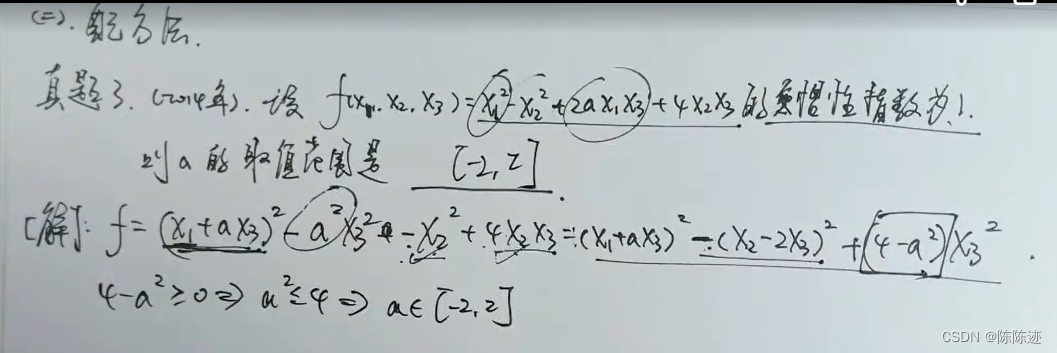 (二). 配方法.
真题3. (2014年). 设 f(x₁, x₂, x₃) = x₁² - x₂² + 2ax₁x₃ + 4x₂x₃ 的负惯性指数为1.
则a的取值范围是 [-2, 2] .
[解]: f = (x₁+ax₃)² - a²x₃² - x₂² + 4x₂x₃ = (x₁+ax₃)² - (x₂-2x₃)² + (4-a²)x₃² .
4-a² ≥ 0 ⇒ a² ≤ 4 ⇒ a ∈ [-2, 2]
CSDN @陈陈迹